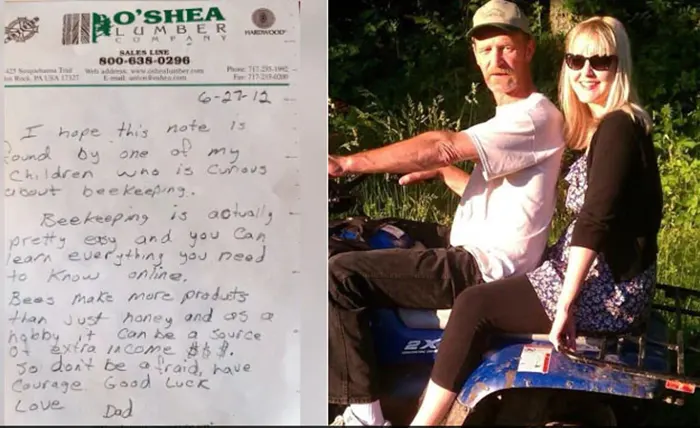 O'SHEA
LUMBER
COMPANY
HARDWOOD
SALES LINE
800-638-0296
425 Susquehanna Trail
Rock, PA USA 17327
Web address: www.oshealumber.com
E-mail:
Phone: 717-235-1992
Fax: 717-235-0200
6-27-12
I hope this note is
found by one of my
Children who is curious
about beekeeping.
Beekeeping is actually
pretty easy and you can
learn everything you need
to know online.
Bees make more products
than just honey and as a
hobby it can be a source
of extra income $$$.
So don't be afraid, have
courage Good Luck
Love Dad
2X